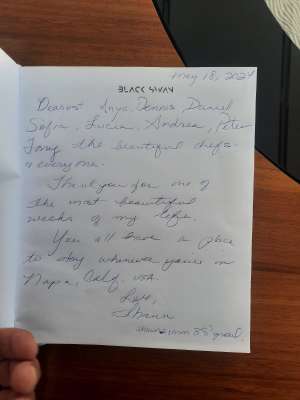 May 18, 2024
BLACK SWAN
Dearest Anya, Dennis, Daniel
Sofia, Lucia, Andrea, Peter
the beautiful chefs
& everyone.
Thank you for one of
the most beautiful
weeks of my life.
You all have a place
to stay whenever you're in
Napa, Calif. USA.
Love,